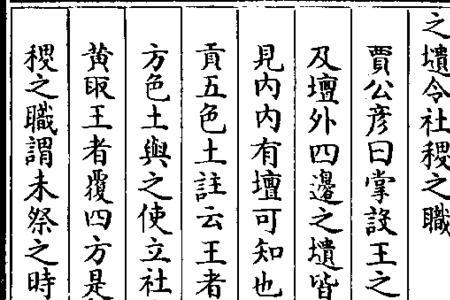 之壝令社稷之職
賈公彥曰掌設王之
及壇外四邊之壝皆
見内内有壇可知也
貢五色土註云王者
方色土與之使立社
黄取王者覆四方是
稷之職謂未祭之時